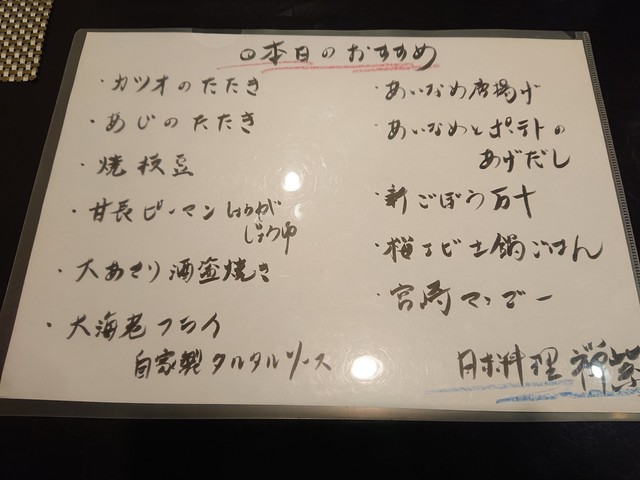 本日のおすすめ
・カツオのたたき
・あじのたたき
・焼枝豆
・甘長ピーマンしょうが
じょうゆ
・大あさり酒釜焼き
・大海老フライ
自家製タルタルソース
・あいなめ唐揚げ
・あいなめとポテトの
あげだし
・新ごぼう万十
・桜エビ土鍋ごはん
・宮崎マンゴー
日本料理